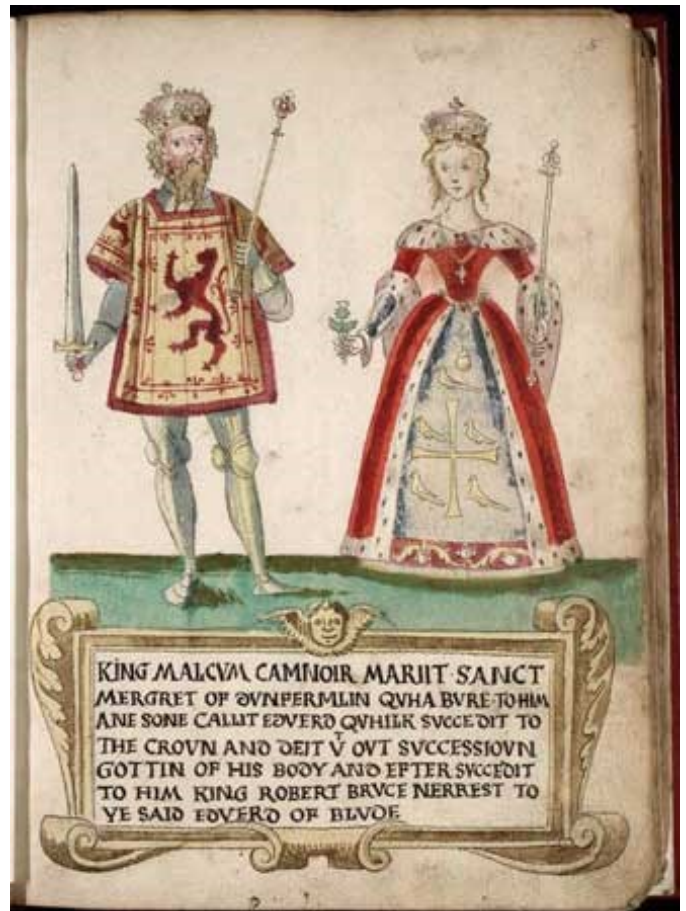 KING MALCVM CAMNOIR MARIIT SANCT
MERGRET OF DVNFERMLIN QVHA BVRE TO HIM
ANE SONE CALLIT EDVERD QVHILK SVCCEDIT TO
THE CROVN AND DEIT Vᵀ OVT SVCCESSIOVN
GOTTIN OF HIS BODY AND EFTER SVCCEDIT
TO HIM KING ROBERT BRVCE NERREST TO
YE SAID EDVERD OF BLVDE